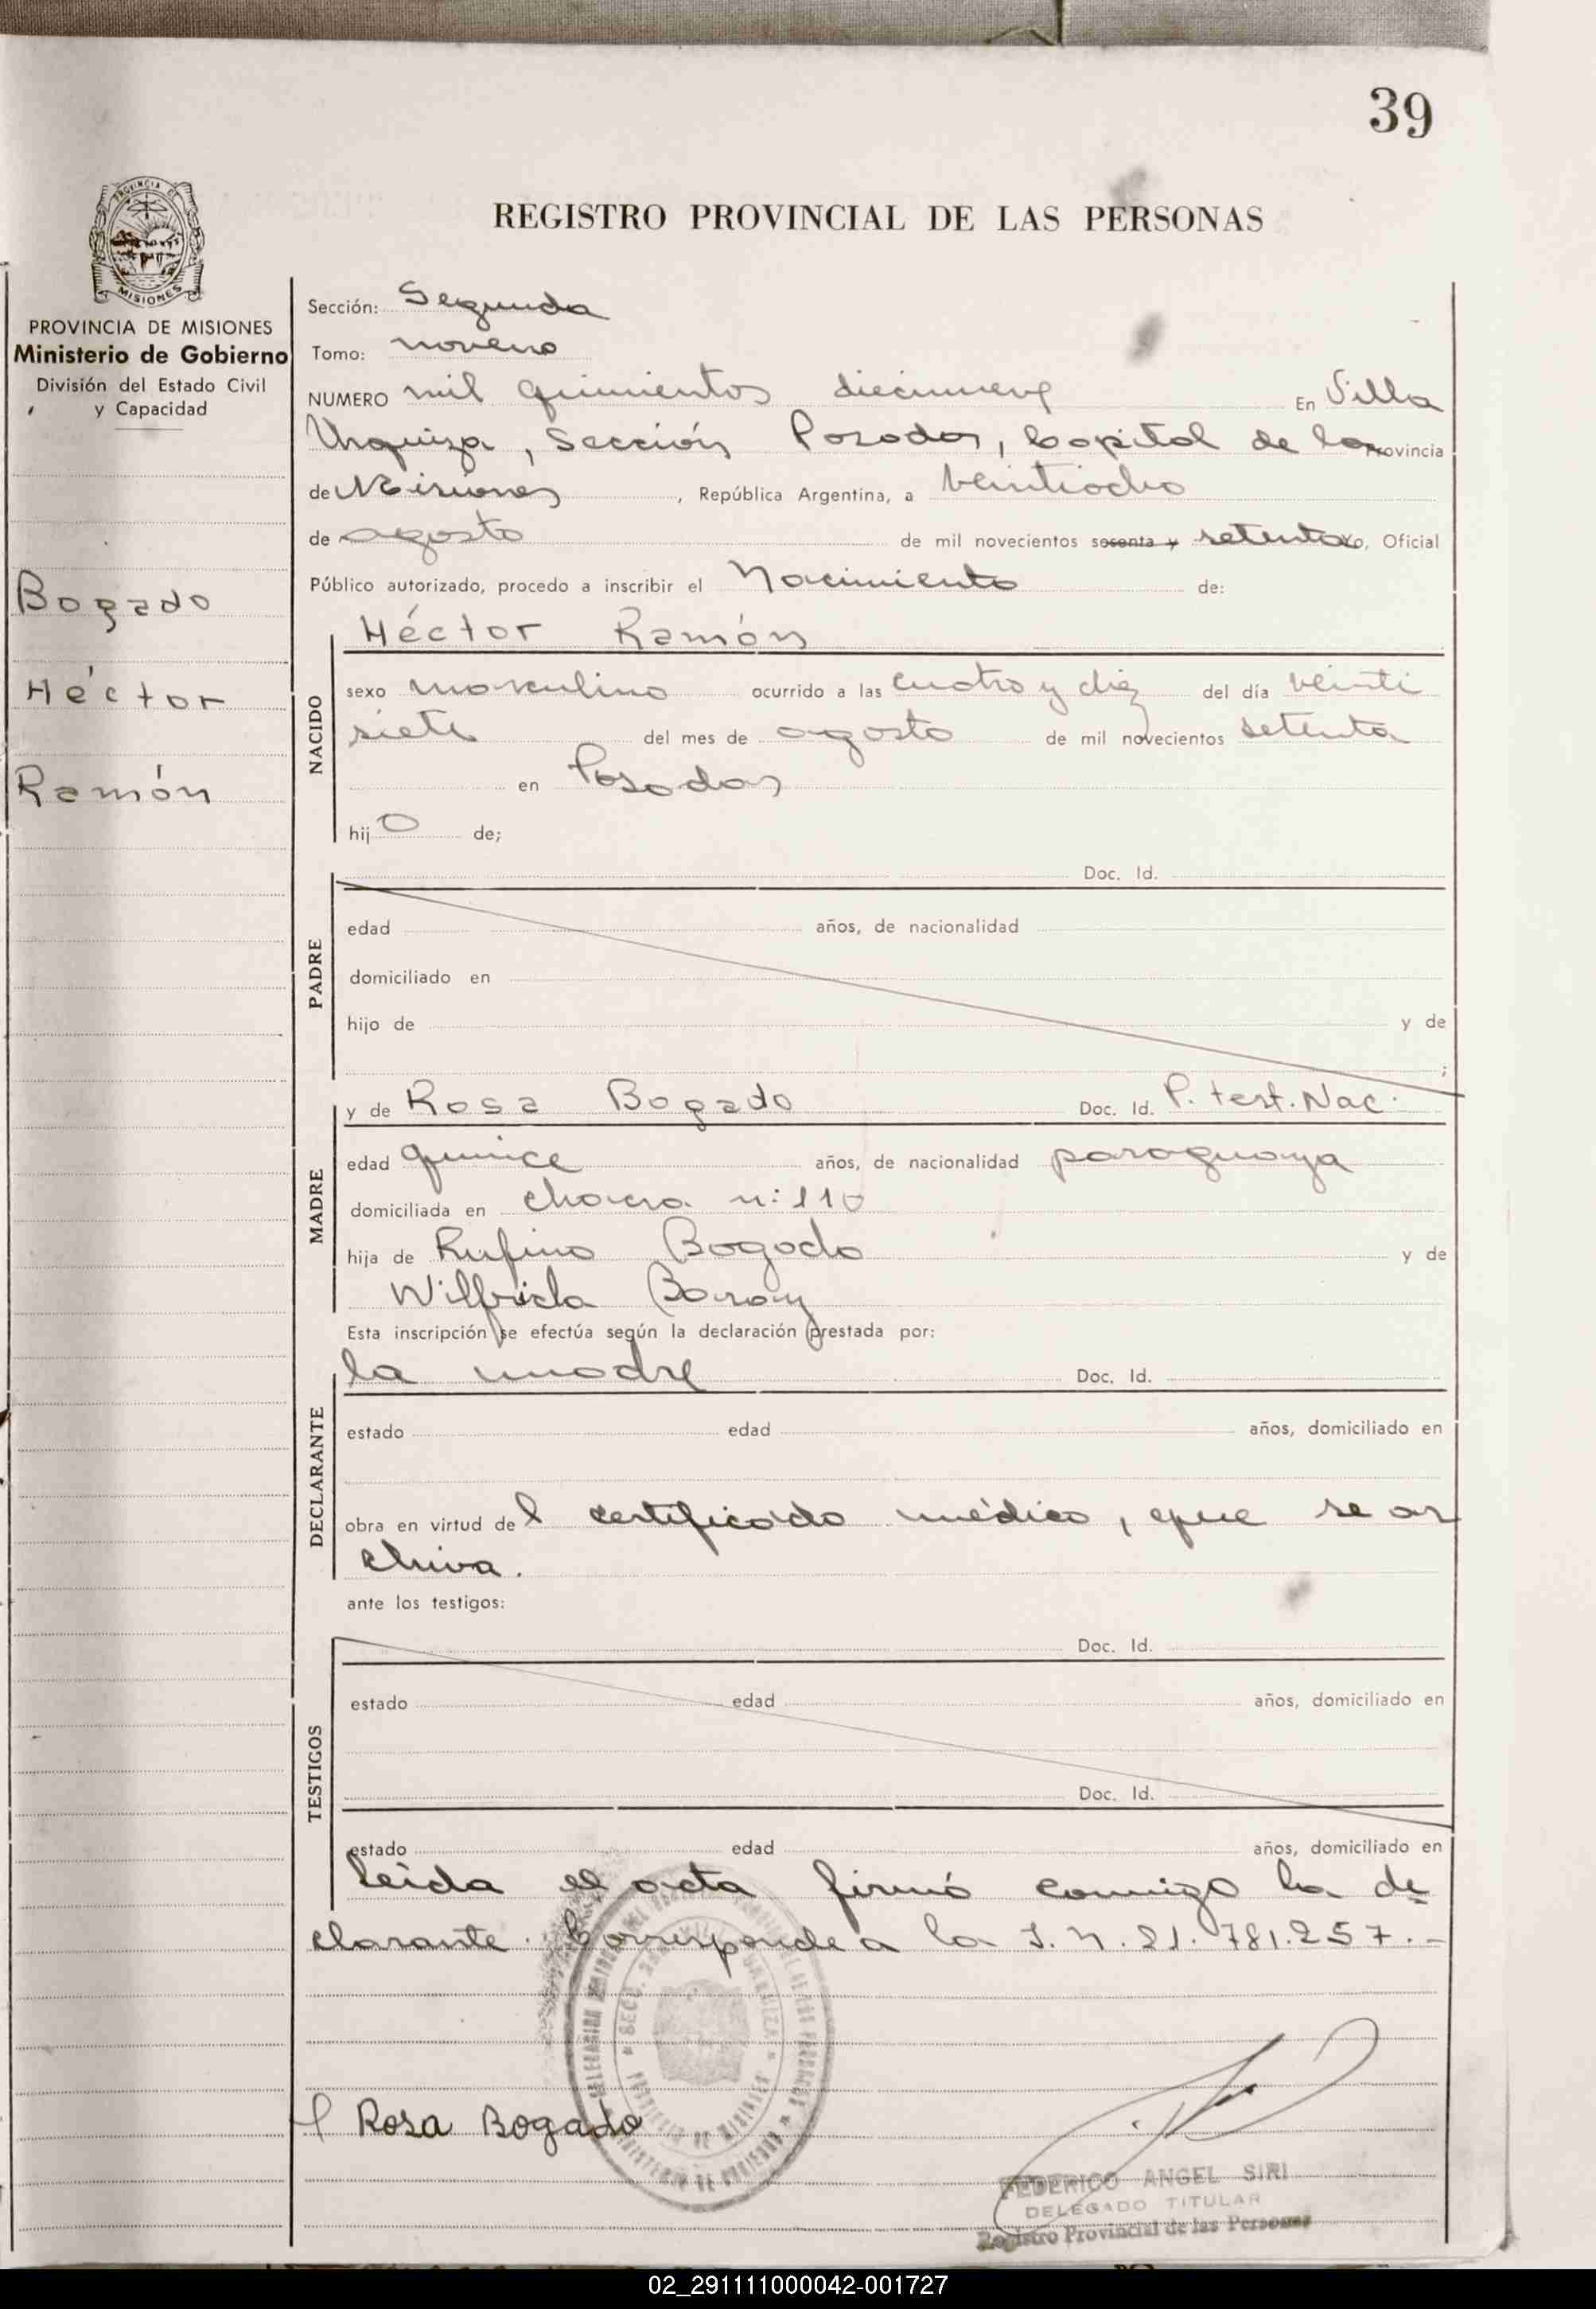 39
REGISTRO PROVINCIAL DE LAS PERSONAS
PROVINCIA DE
MISIONES
PROVINCIA DE MISIONES
Ministerio de Gobierno
División del Estado Civil
y Capacidad
Bogado
Héctor
Ramón
Sección: Segunda
Tomo: noveno
NUMERO mil quinientos diecinueve En Villa
Urquiza, Sección Posadas, Capital de la Provincia
de Misiones, República Argentina, a veintiocho
de agosto de mil novecientos sesenta y setenta yo, Oficial
Público autorizado, procedo a inscribir el Nacimiento de:
Héctor Ramón
NACIDO
sexo masculino ocurrido a las cuatro y diez del día veinti
siete del mes de agosto de mil novecientos setenta
en Posadas
hijo de;
PADRE
Doc. Id.
edad años, de nacionalidad
domiciliado en
hijo de y de
;
MADRE
y de Rosa Bogado Doc. Id. P. test. Nac.
edad quince años, de nacionalidad paraguaya
domiciliada en chacra n: 110
hija de Rufino Bogado y de
Wilfrida
Esta inscripción se efectúa según la declaración prestada por:
DECLARANTE
la madre Doc. Id.
estado edad años, domiciliado en
obra en virtud del certificado médico, que se ar
chiva.
ante los testigos:
TESTIGOS
Doc. Id.
estado edad años, domiciliado en
Doc. Id.
estado edad años, domiciliado en
Leída el acta firmó conmigo la de
clarante. Corresponde a la I.N. 21.781.257.-
Rosa Bogado
FEDERICO ANGEL SIRI
DELEGADO TITULAR
Registro Provincial de las Personas
02_291111000042-001727